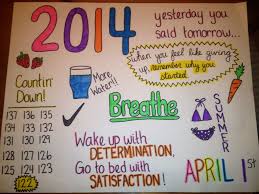 2014
yesterday you
said tomorrow...
when you feel like giving
up, remember why you
started.
Countin'
Down!
More
Water!!
137 136 135
134 133 132
131 130 129
128 127 126
125 124 123
122
Breathe
SUMMER
Wake up with
DETERMINATION,
Go to bed with
SATISFACTION!
APRIL 1st